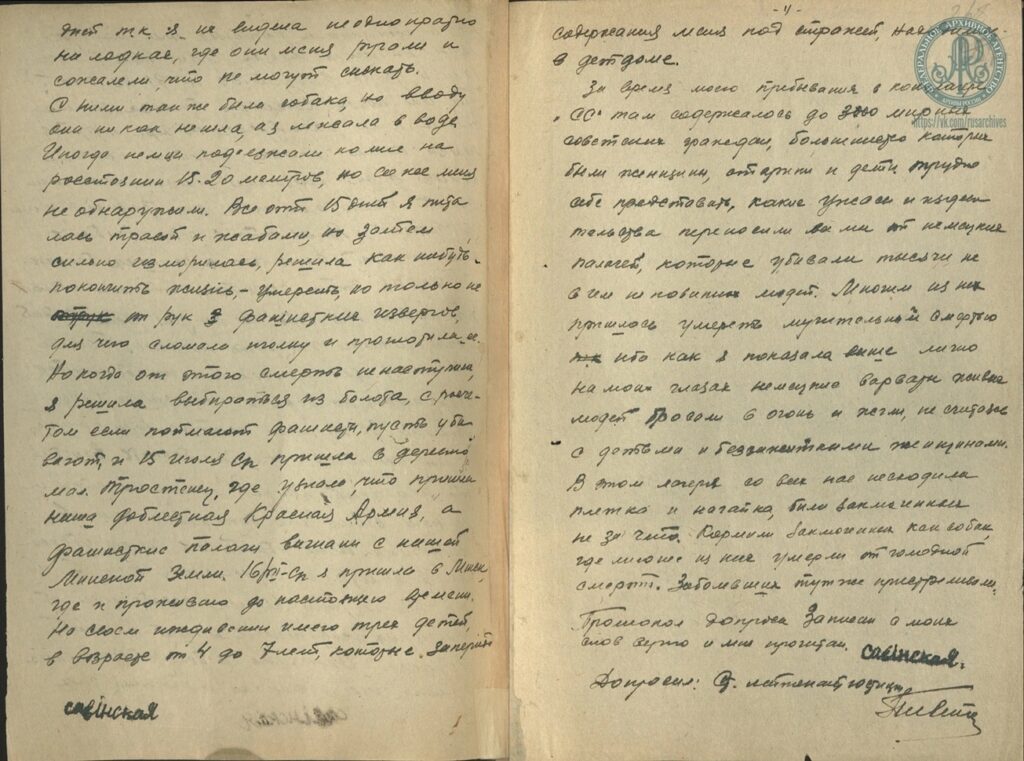 дей т.к. я их видела неоднократно
на лодках, где они меня ругали и
сожалели, что не могут сыскать.
С ними так же была собака, но в воду
она никак не шла, а я лежала в воде
Иногда немцы подъезжали ко мне на
расстоянии 15-20 метров, но все же меня
не обнаружили. Все эти 15 дней я пита
лась травой и жабами, но затем
сильно изморилась, решила как нибудь
покончить жизнь, - умереть, но только не
от рук фашистких извергов,
для чего сломала иголку и проглотила ее.
Но когда от этого смерть не наступила,
я решила выбираться из болота, с расче-
том если поймают фашисты, пусть уби
вают, и 15 июля ср пришла в деревню
мал. Тростенец, где узнала, что пришла
наша доблестная Красная Армия, а
фашисткие палачи, выгнаны с нашей
Минской Земли. 16/VII-ср я пришла в Минск,
где и проживаю до настоящего времени.
На своем иждивении имею трех детей,
в возрасте от 4 до 7 лет, которые за период
савінская
- 4 -
268
содержания меня под стражей,
в детдоме.
За время моего пребывания в концлагере
"СС" там содержалось до мирных
советских граждан, большинство которых
были женщины, старики и дети, трудно
себе представить, какие ужасы и издева
тельства переносили от немецких
палачей, которые убивали тысячи не
в чем не повинных людей. Многим из них
пришлось умереть мучительной смертью
ибо как я показала выше лично
на моих глазах немецкие варвары живых
людей бросали в огонь и жгли, не считаясь
с детьми и беззащитными женщинами.
В этом лагере со всех нас не сходила
плетка и нагайка, били заключенных
не за что. Кормили заключенных как собак,
где многие из них умерли от голодной
смерти. Заболевших тут же пристреливали.
Протокол допроса записан с моих
слов верно и мне прочитан. савінская.
Допросил: Ст. лейтенант юстиции
ЦЕНТРАЛЬНОЕ АРХИВНОЕ АГЕНТСТВО
АРХИВЫ РОССИИ
https://vk.com/rusarchives